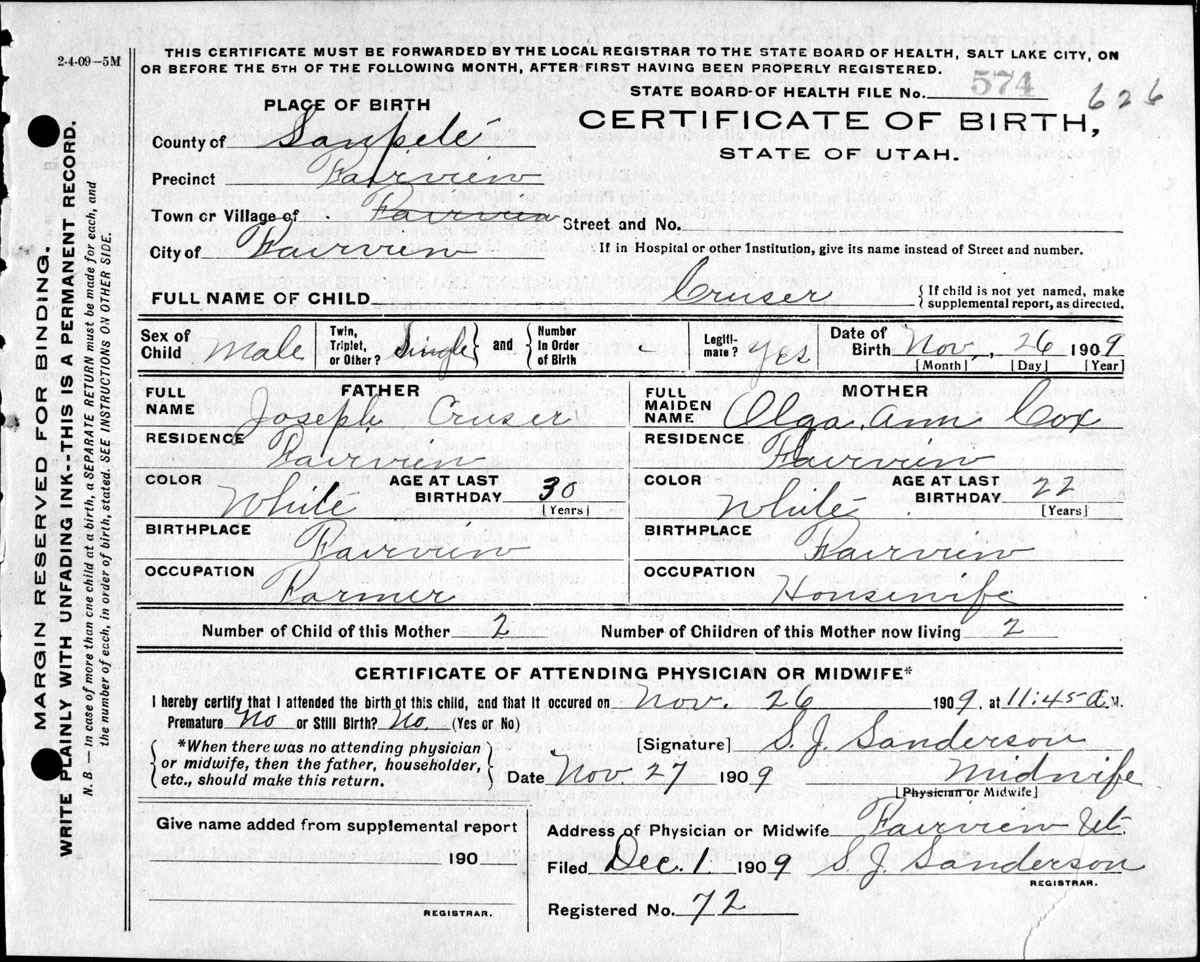 2-4-09-5M
THIS CERTIFICATE MUST BE FORWARDED BY THE LOCAL REGISTRAR TO THE STATE BOARD OF HEALTH, SALT LAKE CITY, ON
OR BEFORE THE 5TH OF THE FOLLOWING MONTH, AFTER FIRST HAVING BEEN PROPERLY REGISTERED.
STATE BOARD OF HEALTH FILE No. 574
626
PLACE OF BIRTH
CERTIFICATE OF BIRTH,
STATE OF UTAH.
County of Sanpete
Precinct Fairview
Town or Village of Fairview Street and No.
City of Fairview If in Hospital or other Institution, give its name instead of Street and number.
FULL NAME OF CHILD Cruser { If child is not yet named, make
supplemental report, as directed.
Sex of Child Male Twin, Triplet, or Other? Single } and { Number in Order of Birth Legiti-mate? Yes Date of Birth Nov. 26 1909
[Month] [Day] [Year]
FATHER MOTHER
FULL NAME Joseph Cruser FULL MAIDEN NAME Olga Ann Cox
RESIDENCE Fairview RESIDENCE Fairview
COLOR White AGE AT LAST BIRTHDAY 30 [Years] COLOR White AGE AT LAST BIRTHDAY 22 [Years]
BIRTHPLACE Fairview BIRTHPLACE Fairview
OCCUPATION Farmer OCCUPATION Housewife
Number of Child of this Mother 2 Number of Children of this Mother now living 2
CERTIFICATE OF ATTENDING PHYSICIAN OR MIDWIFE*
I hereby certify that I attended the birth of this child, and that it occured on Nov. 26 1909, at 11:45 A. M.
Premature No or Still Birth? No. (Yes or No)
{ *When there was no attending physician
or midwife, then the father, householder,
etc., should make this return. }
[Signature] S. J. Sanderson
Date Nov. 27 1909 Midwife
[Physician or Midwife]
Give name added from supplemental report
190
REGISTRAR.
Address of Physician or Midwife Fairview Ut.
Filed Dec. 1. 1909 S. J. Sanderson
REGISTRAR.
Registered No. 72
MARGIN RESERVED FOR BINDING.
WRITE PLAINLY WITH UNFADING INK--THIS IS A PERMANENT RECORD.
N. B. — In case of more than one child at a birth, a SEPARATE RETURN must be made for each, and
the number of each, in order of birth, stated. SEE INSTRUCTIONS ON OTHER SIDE.